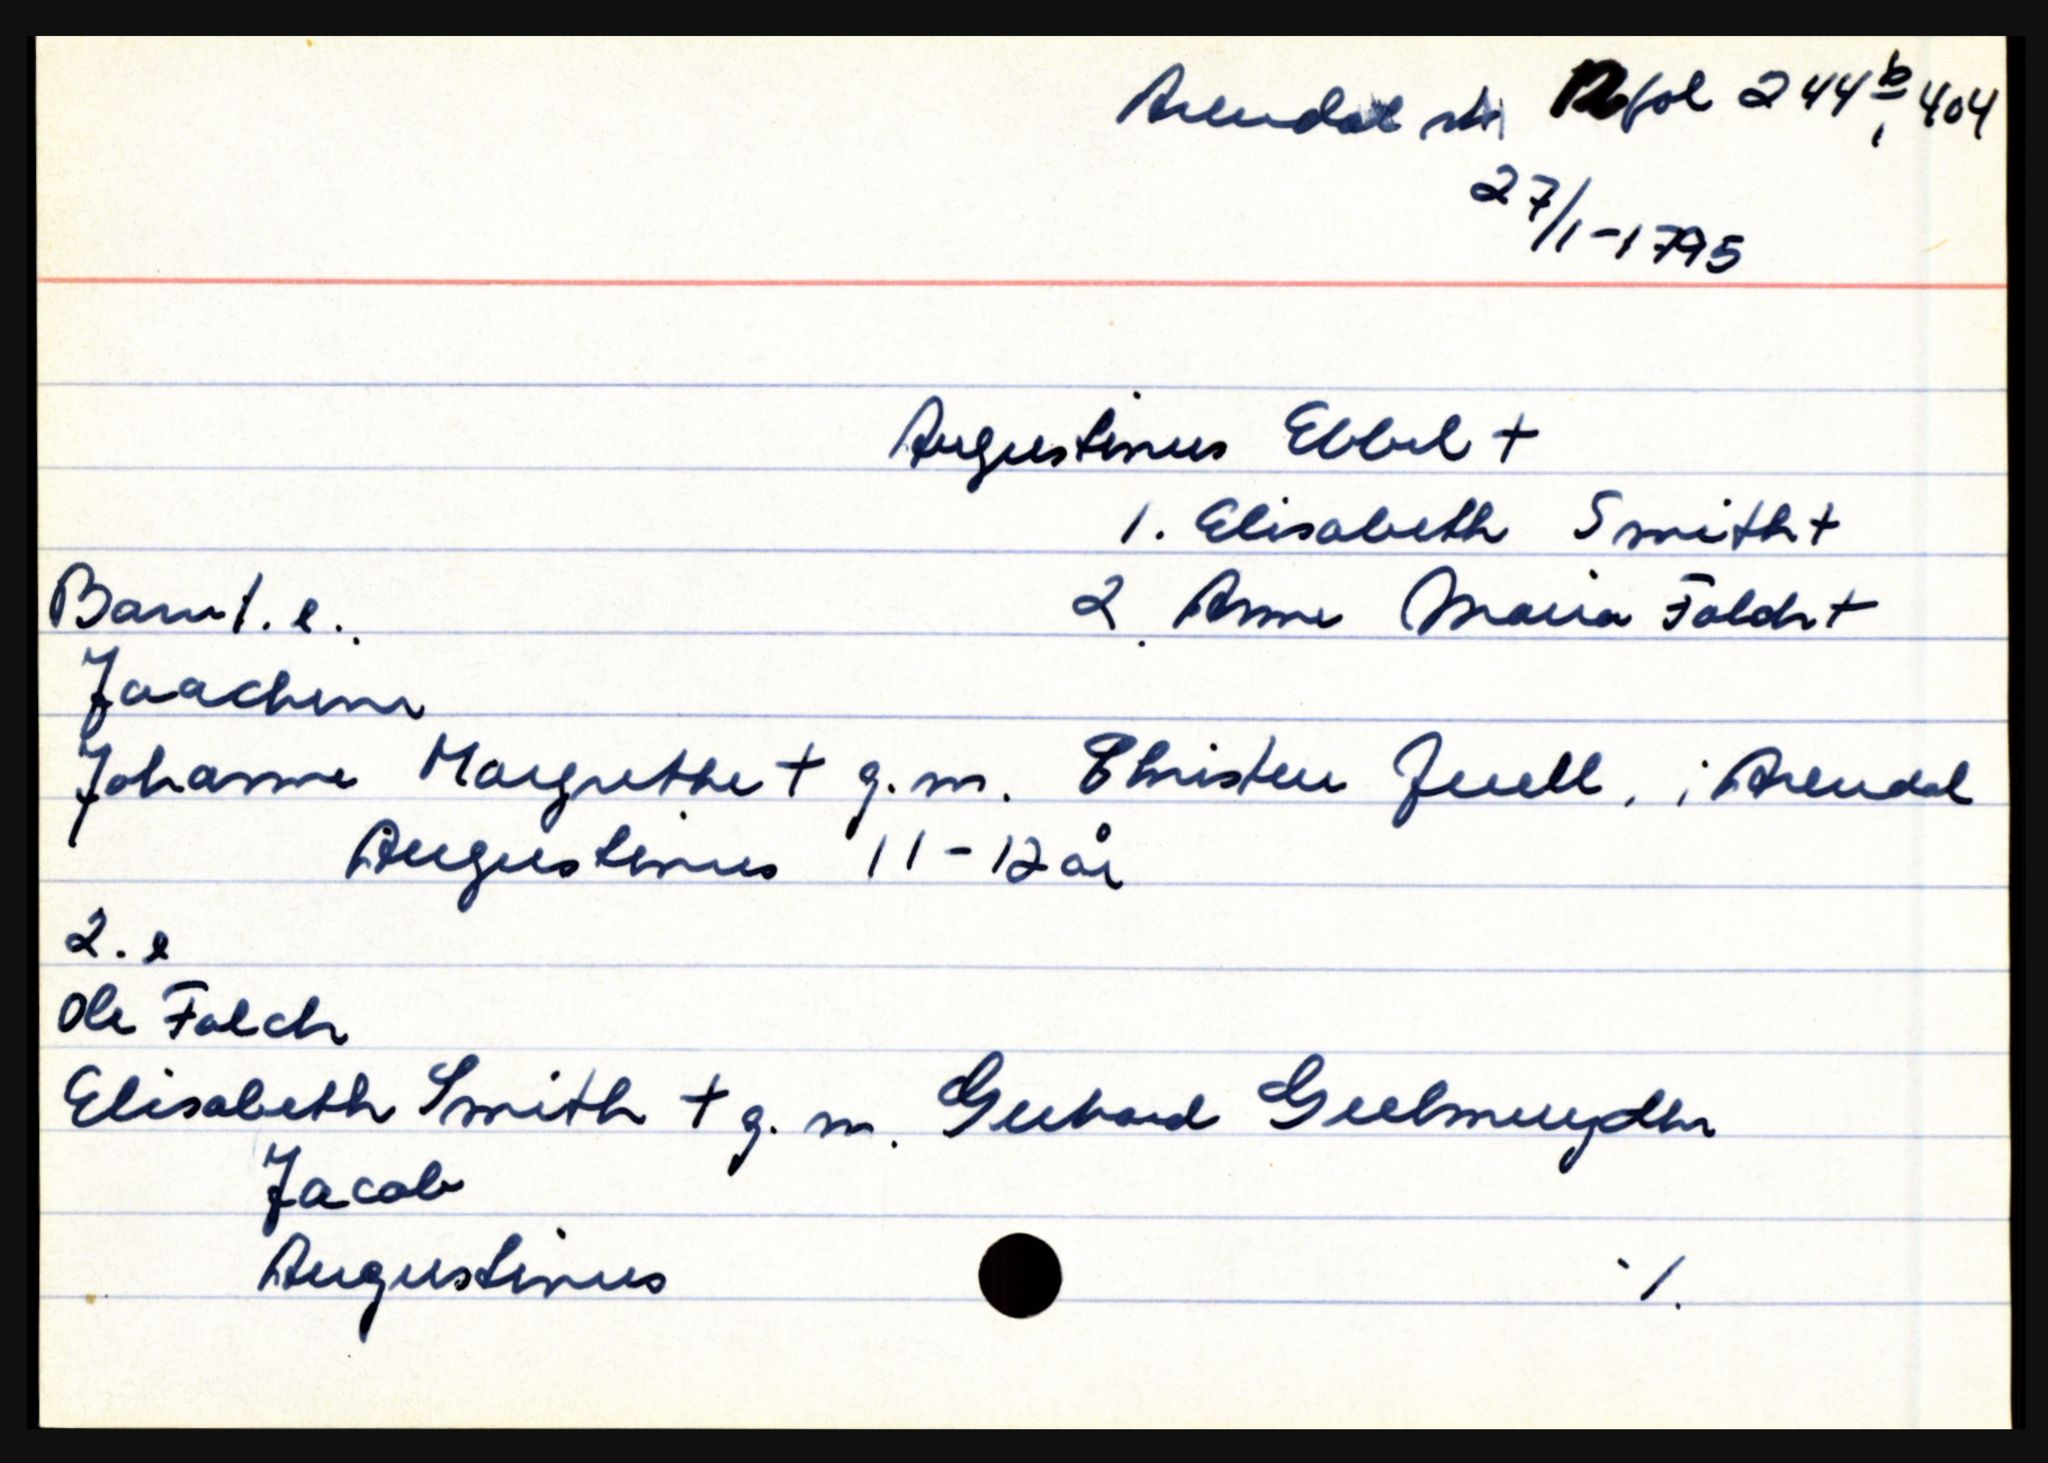 Arendal sk 12 fol 244b, 404
27/1-1795
Augustinus Ebbel +
1. Elisabeth Smith +
Barn 1. e.
2. Anne Maria Falch +
Jaachim
Johanne Margrethe + g. m. Christen Juell, i Arendal
Augustinus 11-12 år
2. e
Ole Falch
Elisabeth Smith + g. m. Gerhard Geelmuyden
Jacob
Augustinus
./.